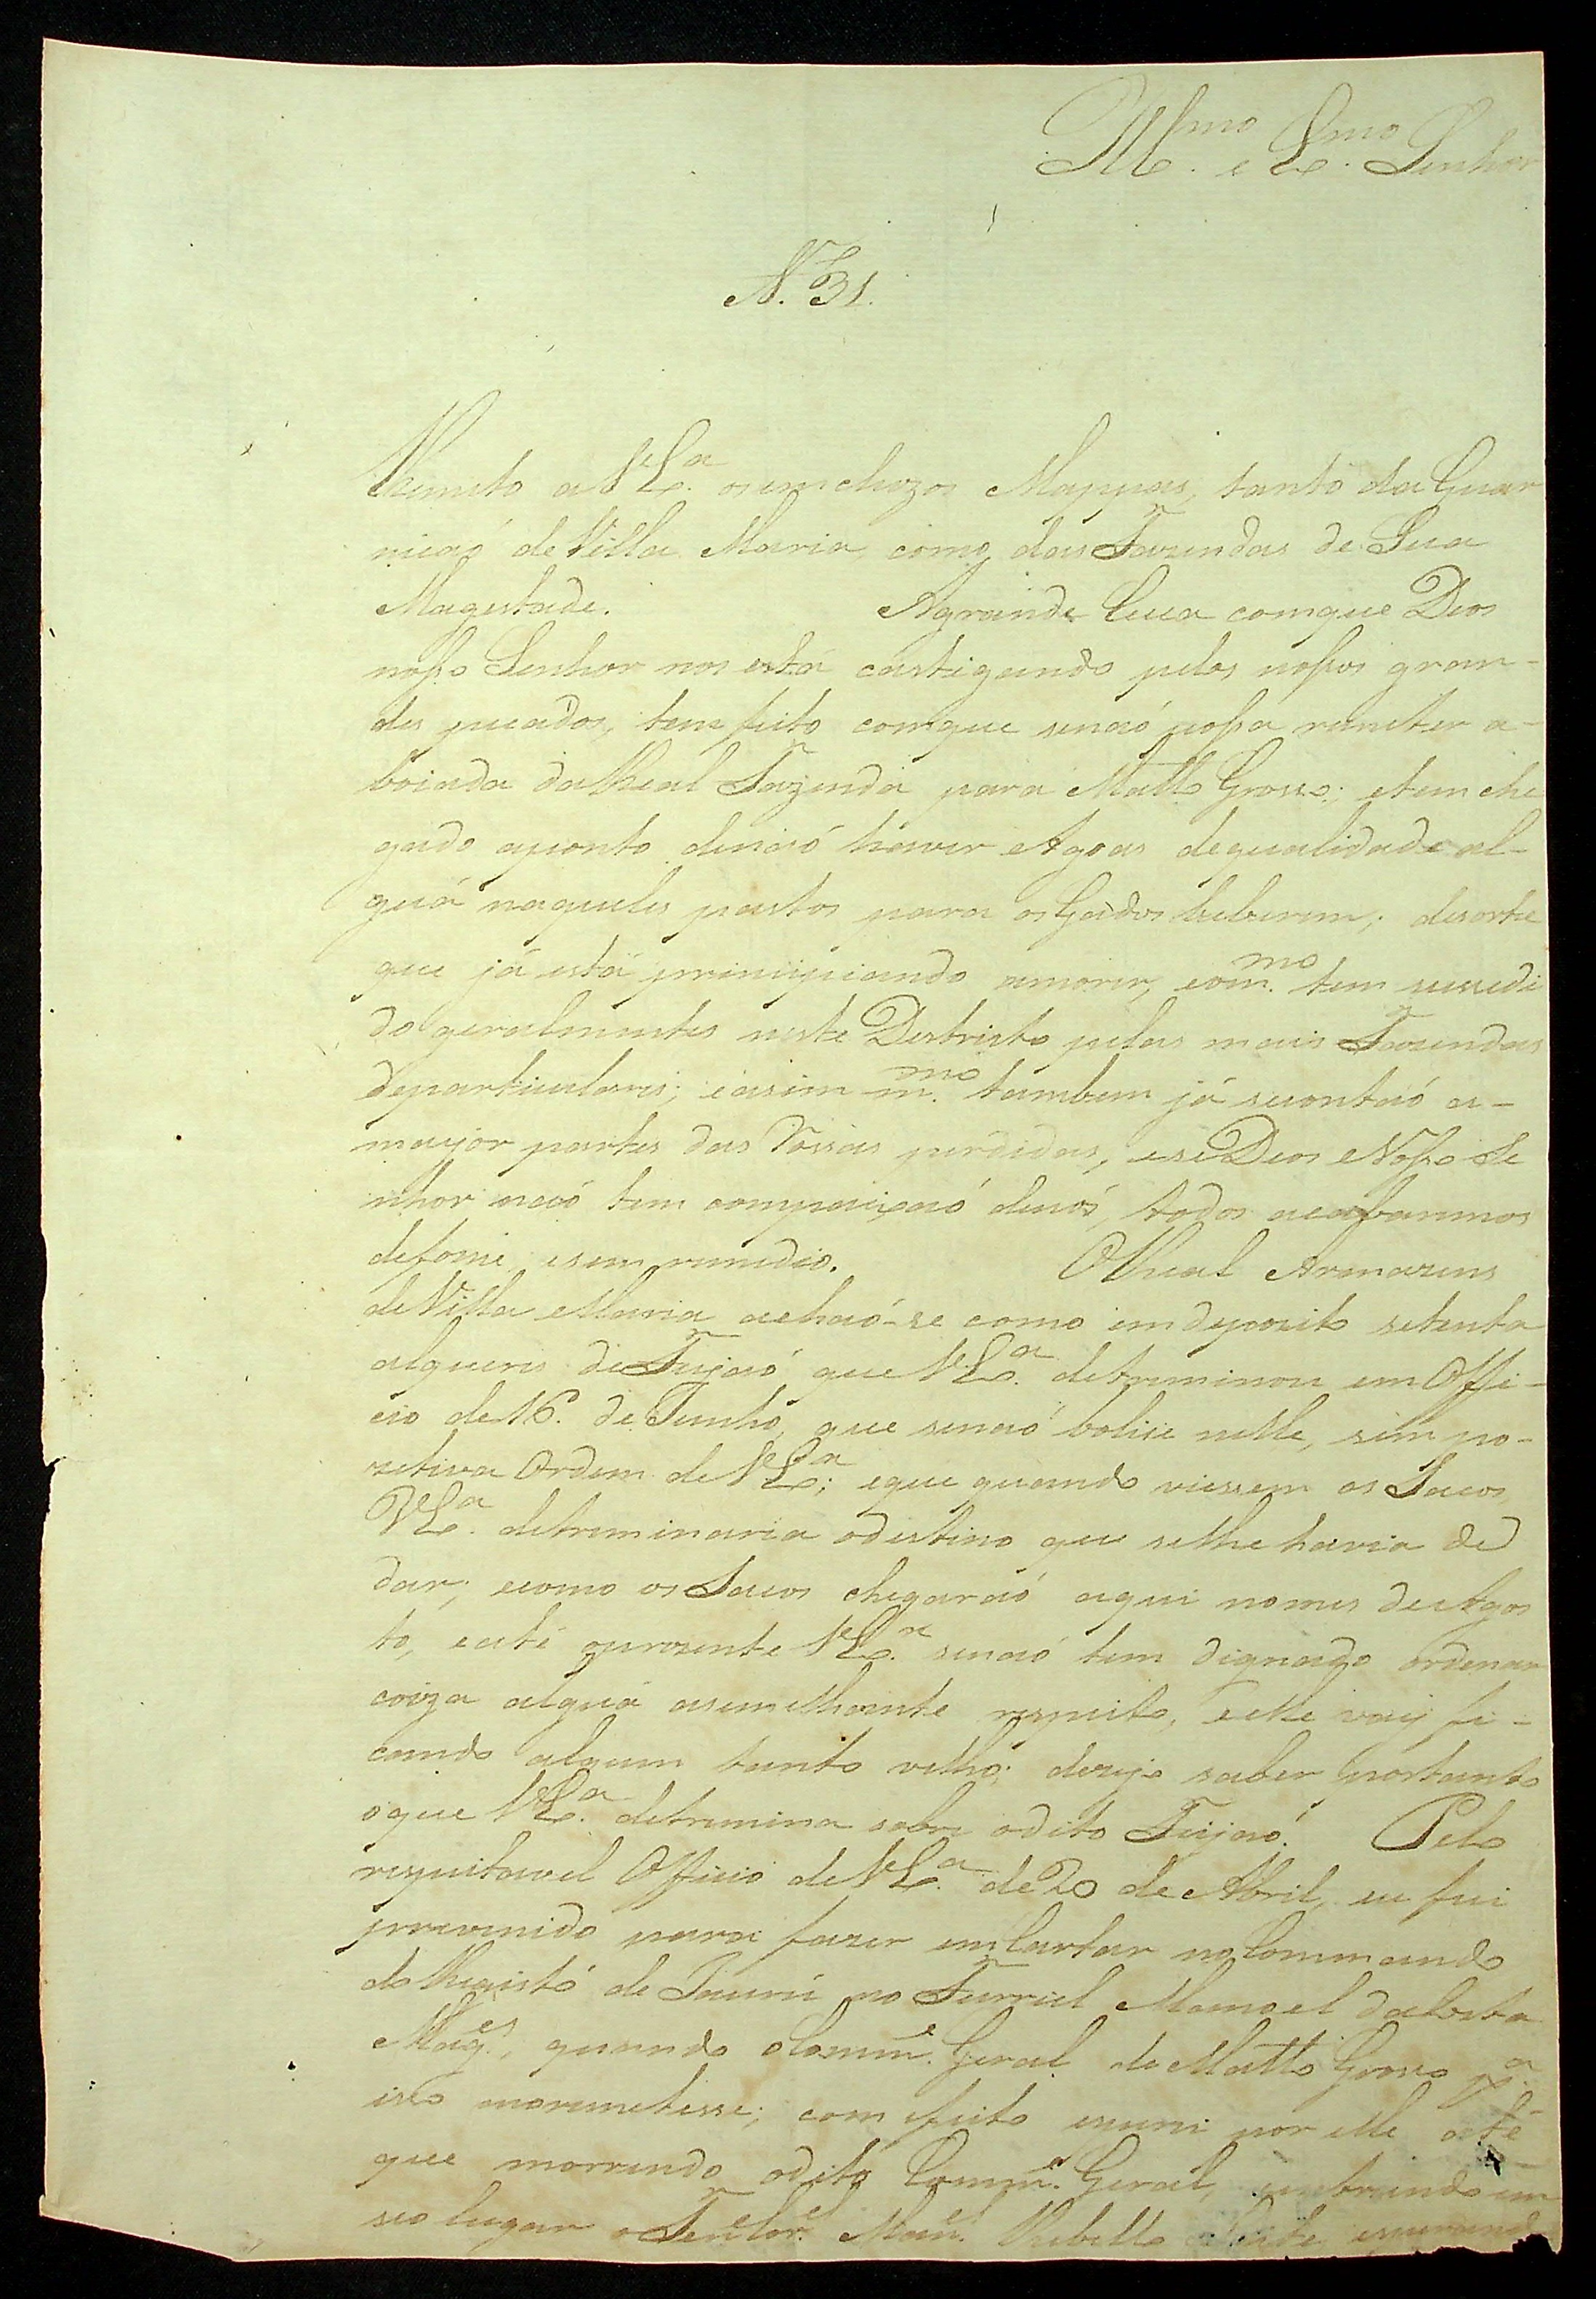 Ill.mo e Ex.mo Senhor
N.º 31.
Remeto a V.Ex.a os incluzos Mappas, tanto da Guar
nicaõ de Villa Maria, como das Fazendas de Sua
Magestade. Agrande Ceca comque Deos
nosso Senhor nos está castigando pelos nossos gran-
des pecados, tem feito comque senaõ possa remeter a-
boiada da Real Fazenda para Matto Grosso; etem che
gado aponto denaõ haver Agoas dequalidade al-
guá naqueles pastos para os Gados beberem; desorte
que já está principiando amorer, eom.mo tem susedi
do geralmentes neste Destricto pelas mais Fazendas
departiculares; easim m.mo tambem já secontaõ a-
mayor partes das Rossas perdidas, ese Deos Nosso Se
nhor naõ tem compaixaõ denós, todos acabaremos
defome, esem remedio. O Real Armazens
de Villa Maria achaõ-se como emdeposito setenta
alqueres de Feijaõ que V.Ex.a detreminou em Offi-
cio de 16. de Junho, que senaõ bolise nelle, sem po-
zetiva Ordem de V.Ex.a; eque quando viessem os Sacos,
V.Ex.a detreminaria odestino que selhe havia de
dar; ecomo os Sacos chegaraõ aqui nomes de Agos
to, eaté oprezente V.Ex.a senaõ tem dignado ordenar
coiza alguá asemelhante respeito, e elle vay fi-
cando algum tanto velho; dezejo saber portanto
oque V.Ex.a detremina sobre odito Feijaõ. Pelo
respeitavel Officio de V.Ex.a de 20 de Abril, eu fui
prevenido para fazer emCartar no Commando
do Registo de Jaurú ao Furriel Manoel da Costa
Mag.es, quando o Comm.e Geral de Matto Grosso p.a
iso moremetesse; com efeito esperei por elle até
que morrendo odito Comm.e Geral, eentrando em
seo lugar o Ten.e Cor.el Man.el Rebello Leite, esperando